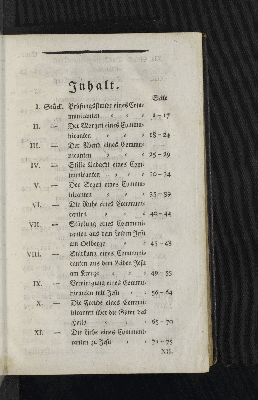 Inhalt.
Seite
I. Stück. Prüfungsstunde eines Com-
municanten 1-17
II. — Der Morgen eines Commu-
nicanten 18-24
III. — Der Abend eines Commu-
nicanten 25-29
IV. — Stille Andacht eines Com-
municanten 30-34
V. — Der Segen eines Commu-
nicanten 35-39
VI. — Die Ruhe eines Communi-
canten 40-44
VII. — Stärkung eines Communi-
canten aus dem Leiden Jesu
am Oelberge 45-48
VIII. — Stärkung eines Communi-
canten aus dem Leiden Jesu
am Kreuze 49-55
IX. — Vereinigung eines Commu-
nicanten mit Jesu 56-64
X. — Die Freude eines Commu-
nicanten über die Güter des
Heils 65-70
XI. — Die Liebe eines Communi-
canten zu Jesu 71-75
XII.